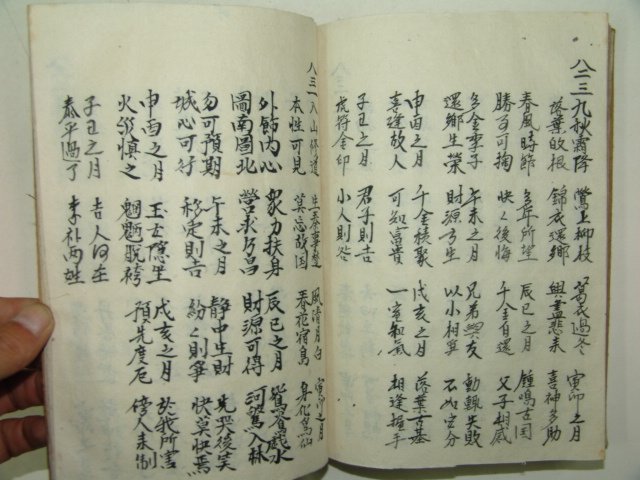 八二三 九秋霜降 鶯上柳枝 葛衣過冬 寅卯之月
落葉啟根 錦衣還鄉 興盡悲來 喜神多助
春風時節 多年所望 辰巳之月 鍾鳴古國
勝事可掬 快快後悔 千金自還 父子相感
多金季子 午未之月 兄若與友 動輒失敗
還鄉生榮 財源方生 以小相爭 不如守分
申酉之月 千金積聚 戊亥之月 落葉古基
喜逢故人 可知富貴 一室和氣 相逢握手
子丑之月 君子則吉
虎符金印 小人則咎
八三一 入山修道 生 風清月白 寅卯之月
本性可見 莫忘故国 春花宿鳥 身化為仙
外飾內心 衆力扶身 辰巳之月 鴛鴦戲水
圖南圖北 營求方昌 財源可得 河 入林
勿可預期 午未之月 靜中生財 先哭後笑
城心可行 移定則吉 紛紛則寧 快莫快焉
申酉之月 玉 隱 戊亥之月 於我所害
火災慎之 魍魎脫袴 預先度厄 傍人未制
子丑之月 吉人何在
泰平過了 李朴兩姓